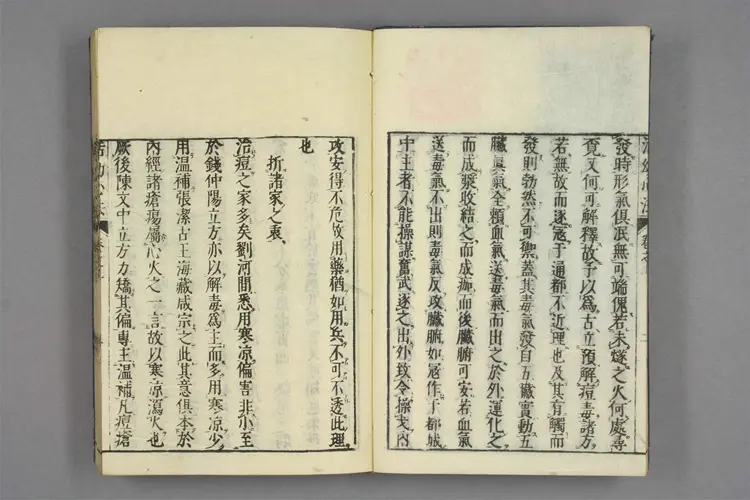 發時形氣俱泯無可端倪若未燧之火何處尋
覓又何可解釋故予以爲古立預解痘毒諸方
若無故而逐寇于通都不近理也及其有觸而
發則勃然不可禦蓋其毒氣發自五臟實動五
臟眞氣全賴血氣送毒氣而出之於外運化之
而成漿收結之而成痂而後臟腑可安若血氣
送毒氣不出則毒氣反攻臟腑如寇作于都城
中主者不能操謀奮武逐之出外致令操戈內
攻安得不危故用藥猶如用兵不可不透此理
也
折諸家之衷
治痘之家多矣劉河間悉用寒凉偏害非小至
於錢仲陽立方亦以解毒爲主而多用寒凉少
用溫補張潔古王海藏咸宗之此其意俱本於
內經諸瘡瘍屬心火之一言故以寒凉瀉火也
厥後陳文中立方力矯其偏專主溫補凡痘瘡
活幼心法